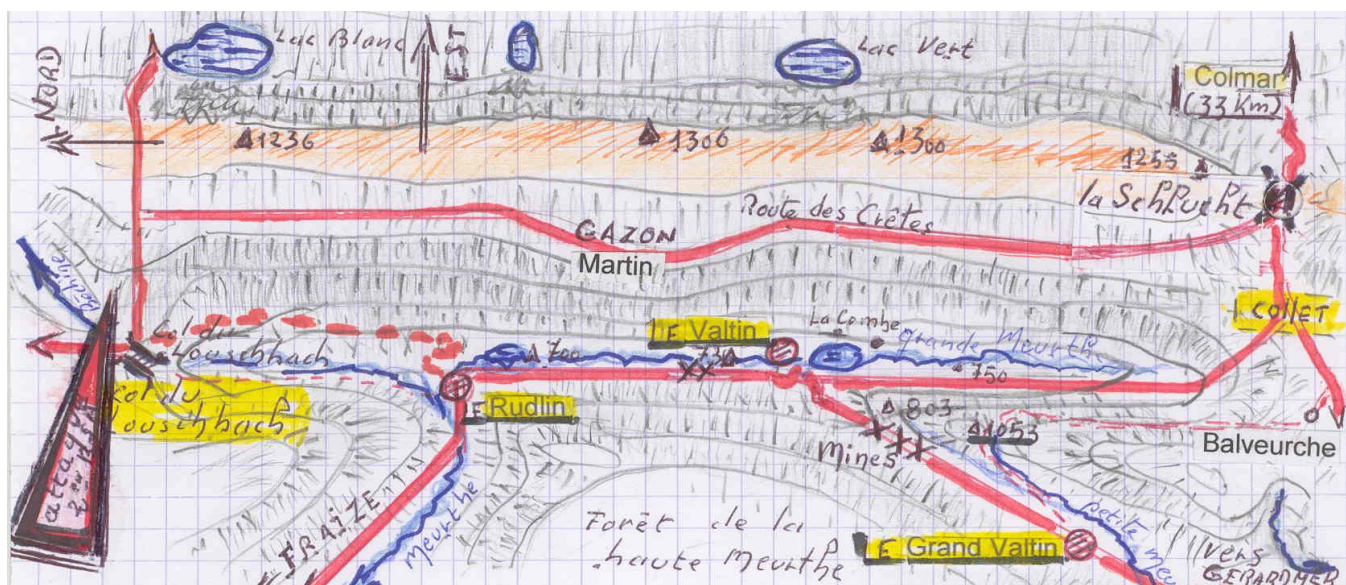 NORD
Lac Blanc
EST
Lac Vert
Colmar
(33 Km)
1236
1306
1300
1255
la Schlucht
Route des Crêtes
GAZON
Martin
Béhine
Col du
Louschbach
Col du
Louschbach
E Valtin
La Combe
grande Meurthe
COLLET
700
730
750
E Rudlin
803
1053
Mines
Balveurche
attaque
FRAIZE
meurthe
Forêt de la
haute Meurthe
E Grand Valtin
petite meu
vers
GERARDMER